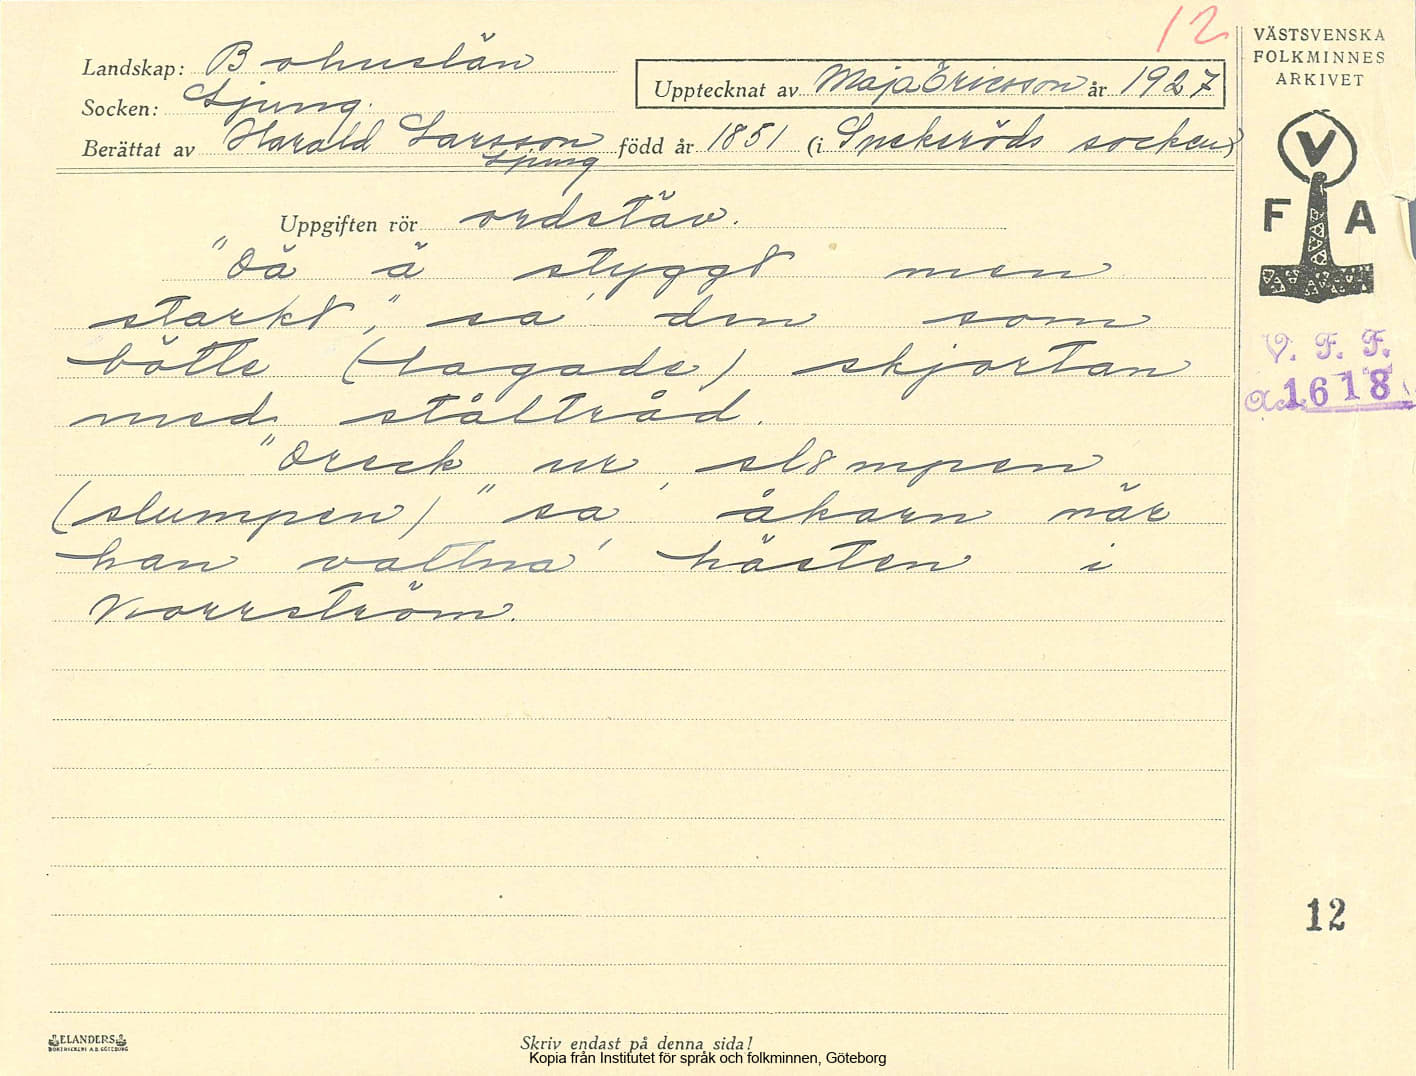 12
VÄSTSVENSKA
FOLKMINNES
ARKIVET
Landskap: Bohuslän
Socken: Ljung.
Upptecknat av Maja Ericsson år 1927
Berättat av Harald Larsson född år 1851 (i Sneksröds socken)
Ljung
V
F A
Uppgiften rör ordstäv.
"Dä ä styggt men
starkt", sa' den som
bötte (lagade) skjortan
med ståltråd.
"Dreck ur slompen
(slumpen)" sa' åkarn när
han vattna' hästen i
Norrström.
V. F. F.
Acc. 1618
12
ELANDERS
BOKTRYCKERI A.B. GÖTEBORG
Skriv endast på denna sida!
Kopia från Institutet för språk och folkminnen, Göteborg